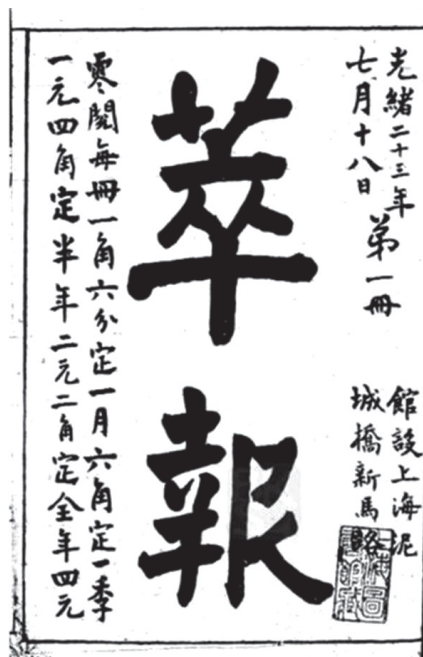 光緒二十三年
七月十八日
第一冊
館設上海泥
城橋新馬路
萃報
零閱每冊一角六分定一月六角定一季
一元四角定半年二元二角定全年四元